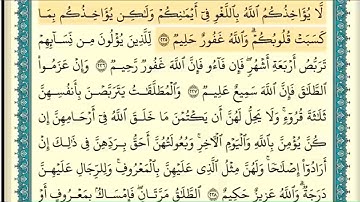 لَّا يُؤَاخِذُكُمُ ٱللَّهُ بِٱللَّغْوِ فِىٓ أَيْمَٰنِكُمْ وَلَٰكِن يُؤَاخِذُكُم بِمَا
كَسَبَتْ قُلُوبُكُمْ ۗ وَٱللَّهُ غَفُورٌ حَلِيمٌ ٢٢٥ لِّلَّذِينَ يُؤْلُونَ مِن نِّسَآئِهِمْ
تَرَبُّصُ أَرْبَعَةِ أَشْهُرٍ ۖ فَإِن فَآءُو فَإِنَّ ٱللَّهَ غَفُورٌ رَّحِيمٌ ٢٢٦ وَإِنْ عَزَمُوا۟
ٱلطَّلَٰقَ فَإِنَّ ٱللَّهَ سَمِيعٌ عَلِيمٌ ٢٢٧ وَٱلْمُطَلَّقَٰتُ يَتَرَبَّصْنَ بِأَنفُسِهِنَّ
ثَلَٰثَةَ قُرُوٓءٍ ۚ وَلَا يَحِلُّ لَهُنَّ أَن يَكْتُمْنَ مَا خَلَقَ ٱللَّهُ فِىٓ أَرْحَامِهِنَّ إِن
كُنَّ يُؤْمِنَّ بِٱللَّهِ وَٱلْيَوْمِ ٱلْـَٔاخِرِ ۚ وَبُعُولَتُهُنَّ أَحَقُّ بِرَدِّهِنَّ فِى ذَٰلِكَ إِنْ
أَرَادُوٓا۟ إِصْلَٰحًا ۚ وَلَهُنَّ مِثْلُ ٱلَّذِى عَلَيْهِنَّ بِٱلْمَعْرُوفِ ۚ وَلِلرِّجَالِ عَلَيْهِنَّ
دَرَجَةٌ ۗ وَٱللَّهُ عَزِيزٌ حَكِيمٌ ٢٢٨ ٱلطَّلَٰقُ مَرَّتَانِ ۖ فَإِمْسَاكٌۢ بِمَعْرُوفٍ أَوْ